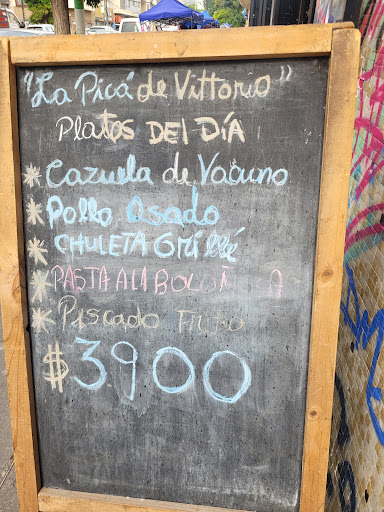 "La Picá de Vittorio"
Platos DEl DÍA
* Cazuela de Vacuno
* Pollo Asado
* CHULETA GRillé
* PASTA A LA
* Pescado Frito
$3900